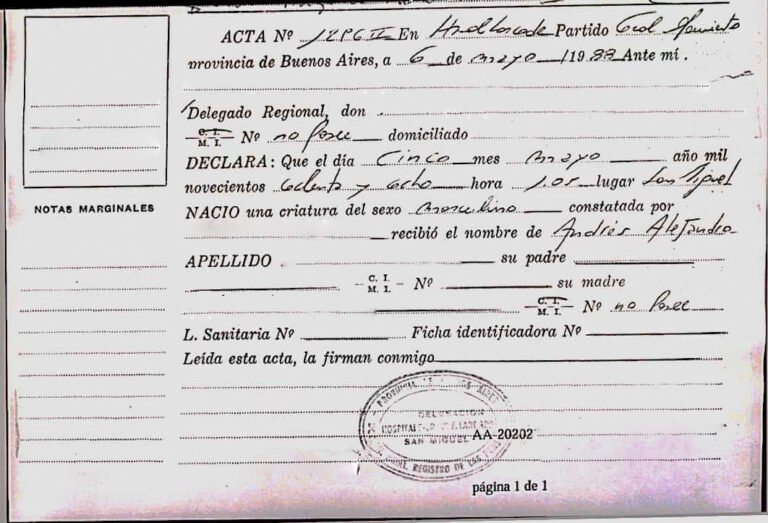 ACTA Nº En Partido Gral
provincia de Buenos Aires, a 6 de mayo /19 88 Ante mí.
Delegado Regional, don
C. I. M. I. Nº no Posee domiciliado
DECLARA: Que el día Cinco mes mayo año mil
novecientos ochenta y ocho hora 1.05 lugar San Miguel
NOTAS MARGINALES
NACIO una criatura del sexo masculino constatada por
recibió el nombre de Andrés Alejandro
APELLIDO su padre
C. I. M. I. Nº su madre
C. I. M. I. Nº no Posee
L. Sanitaria Nº Ficha identificadora Nº
Leída esta acta, la firman conmigo
DELEGACION
HOSPITAL
SAN MIGUEL AA-20202
REGISTRO DE LAS
página 1 de 1